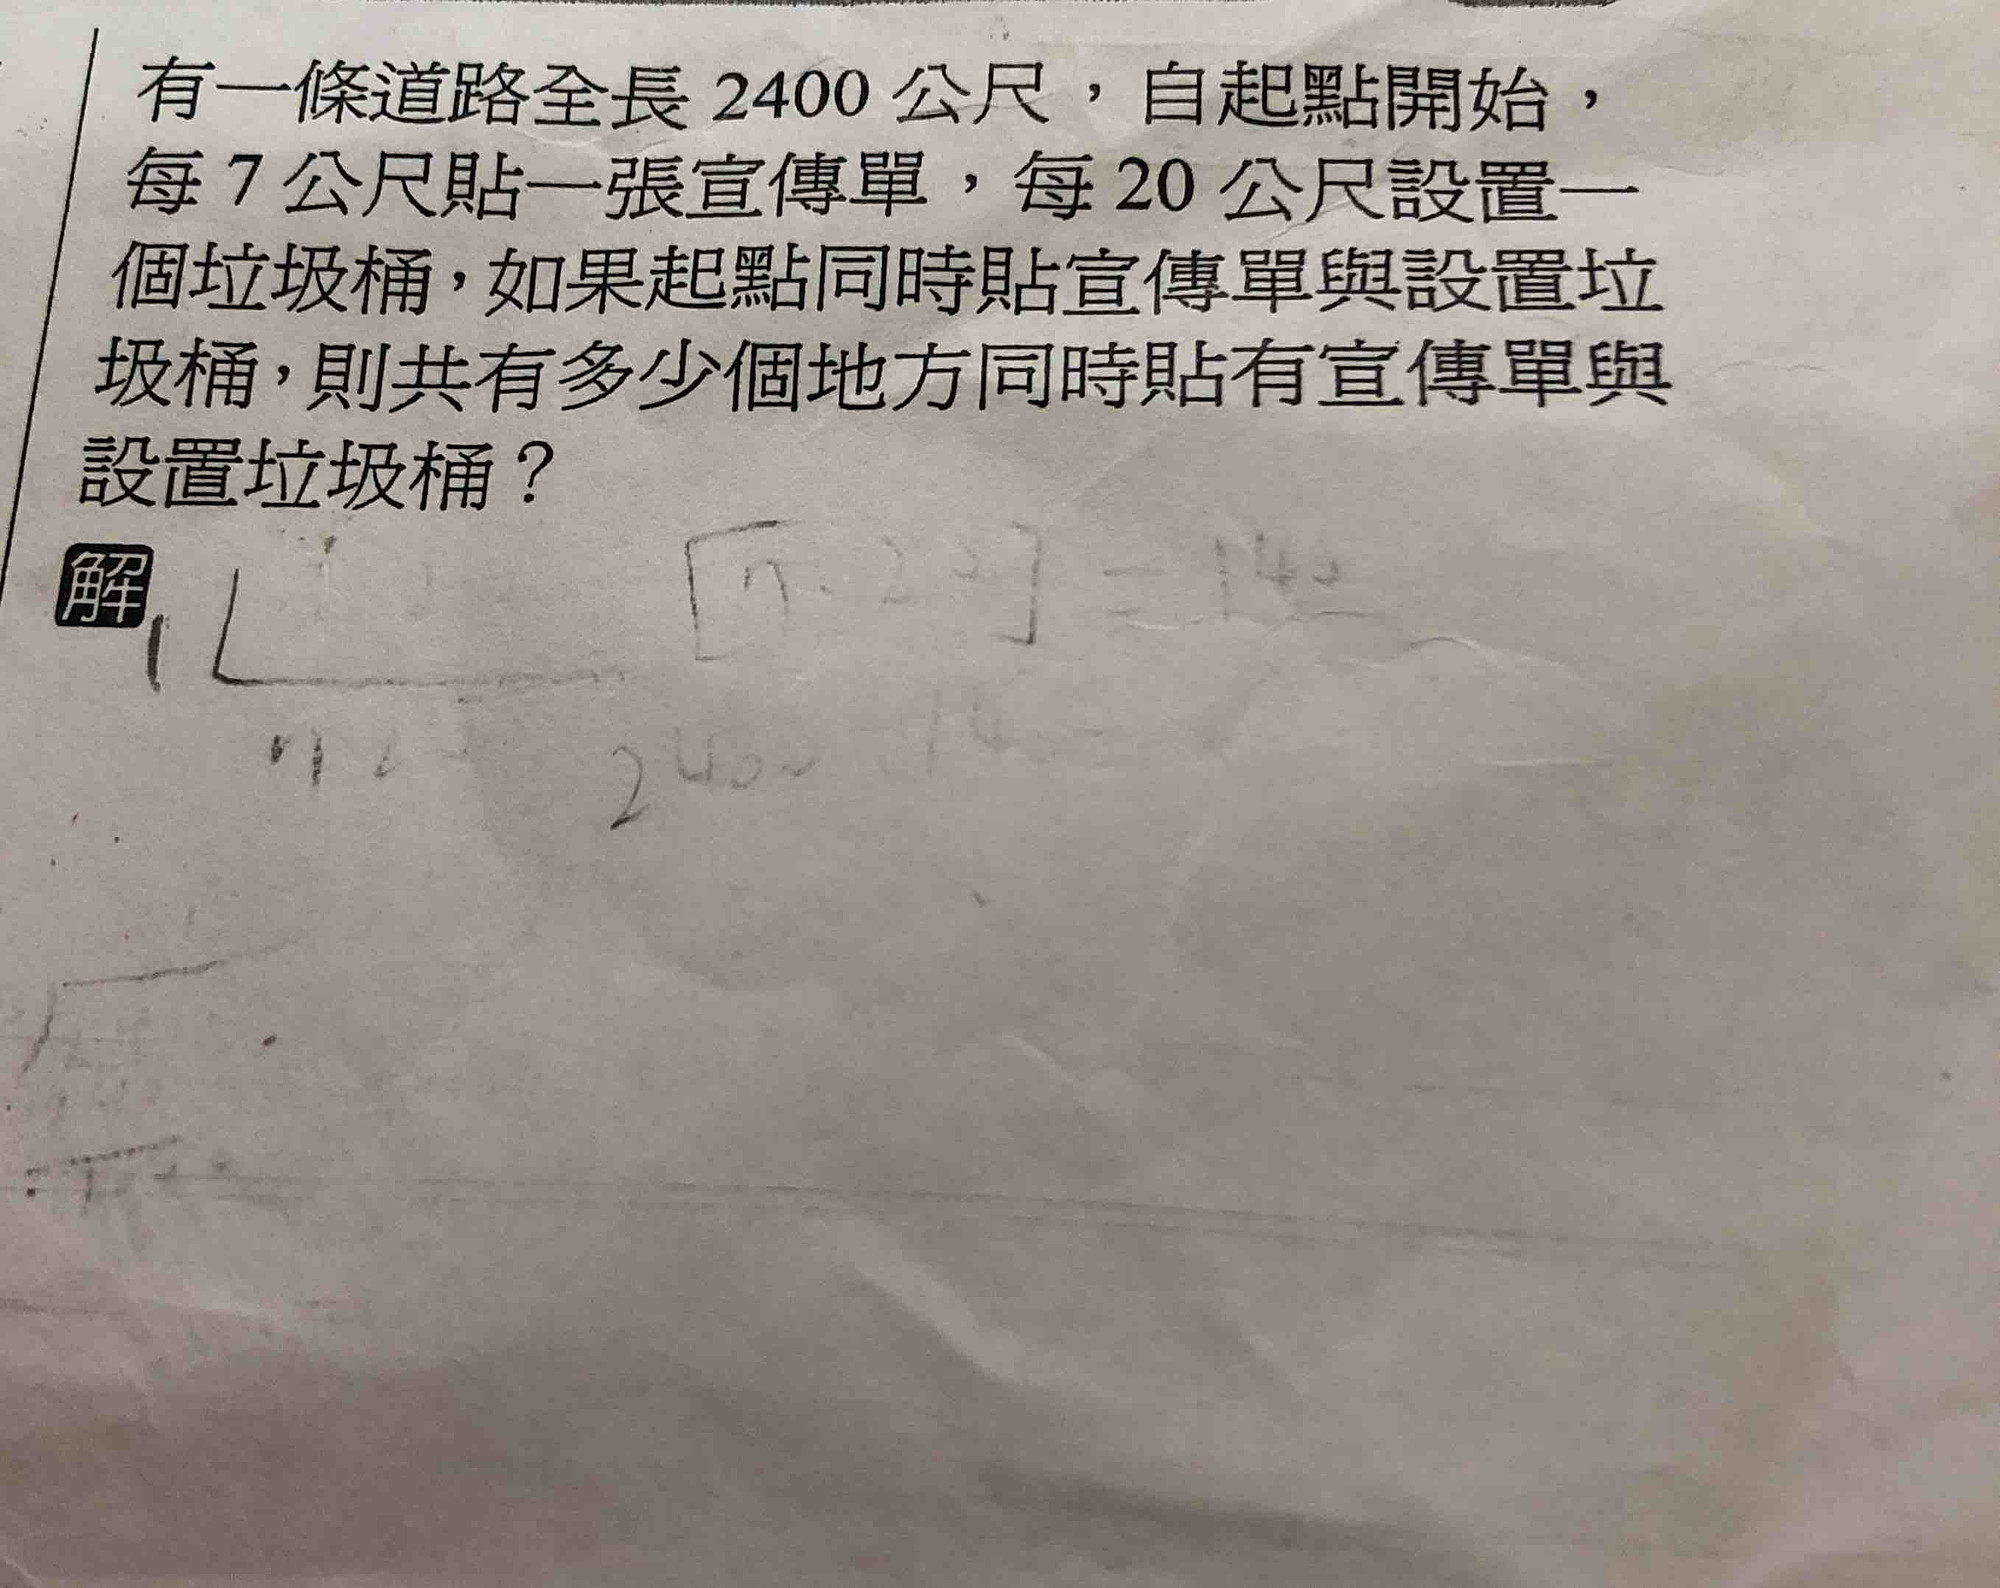 有一條道路全長 2400 公尺，自起點開始，
每 7 公尺貼一張宣傳單，每 20 公尺設置一
個垃圾桶，如果起點同時貼宣傳單與設置垃
圾桶，則共有多少個地方同時貼有宣傳單與
設置垃圾桶？
解
1
= 140
2400 14